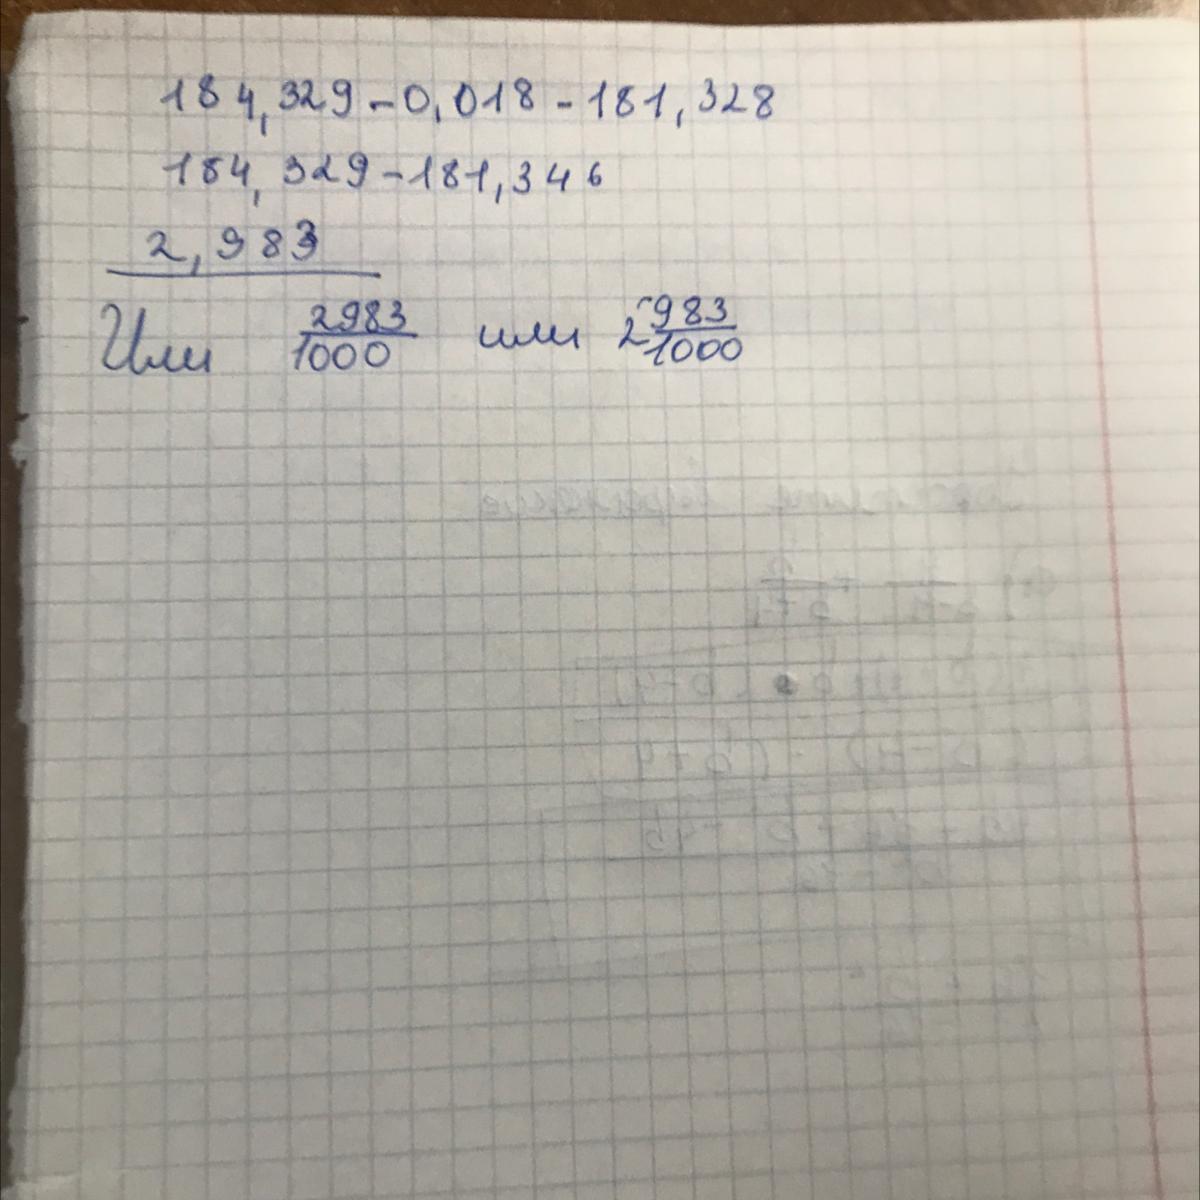 184,329-0,018-181,328
184,329-181,346
2,983
Или 2983/1000 или 2 983/1000